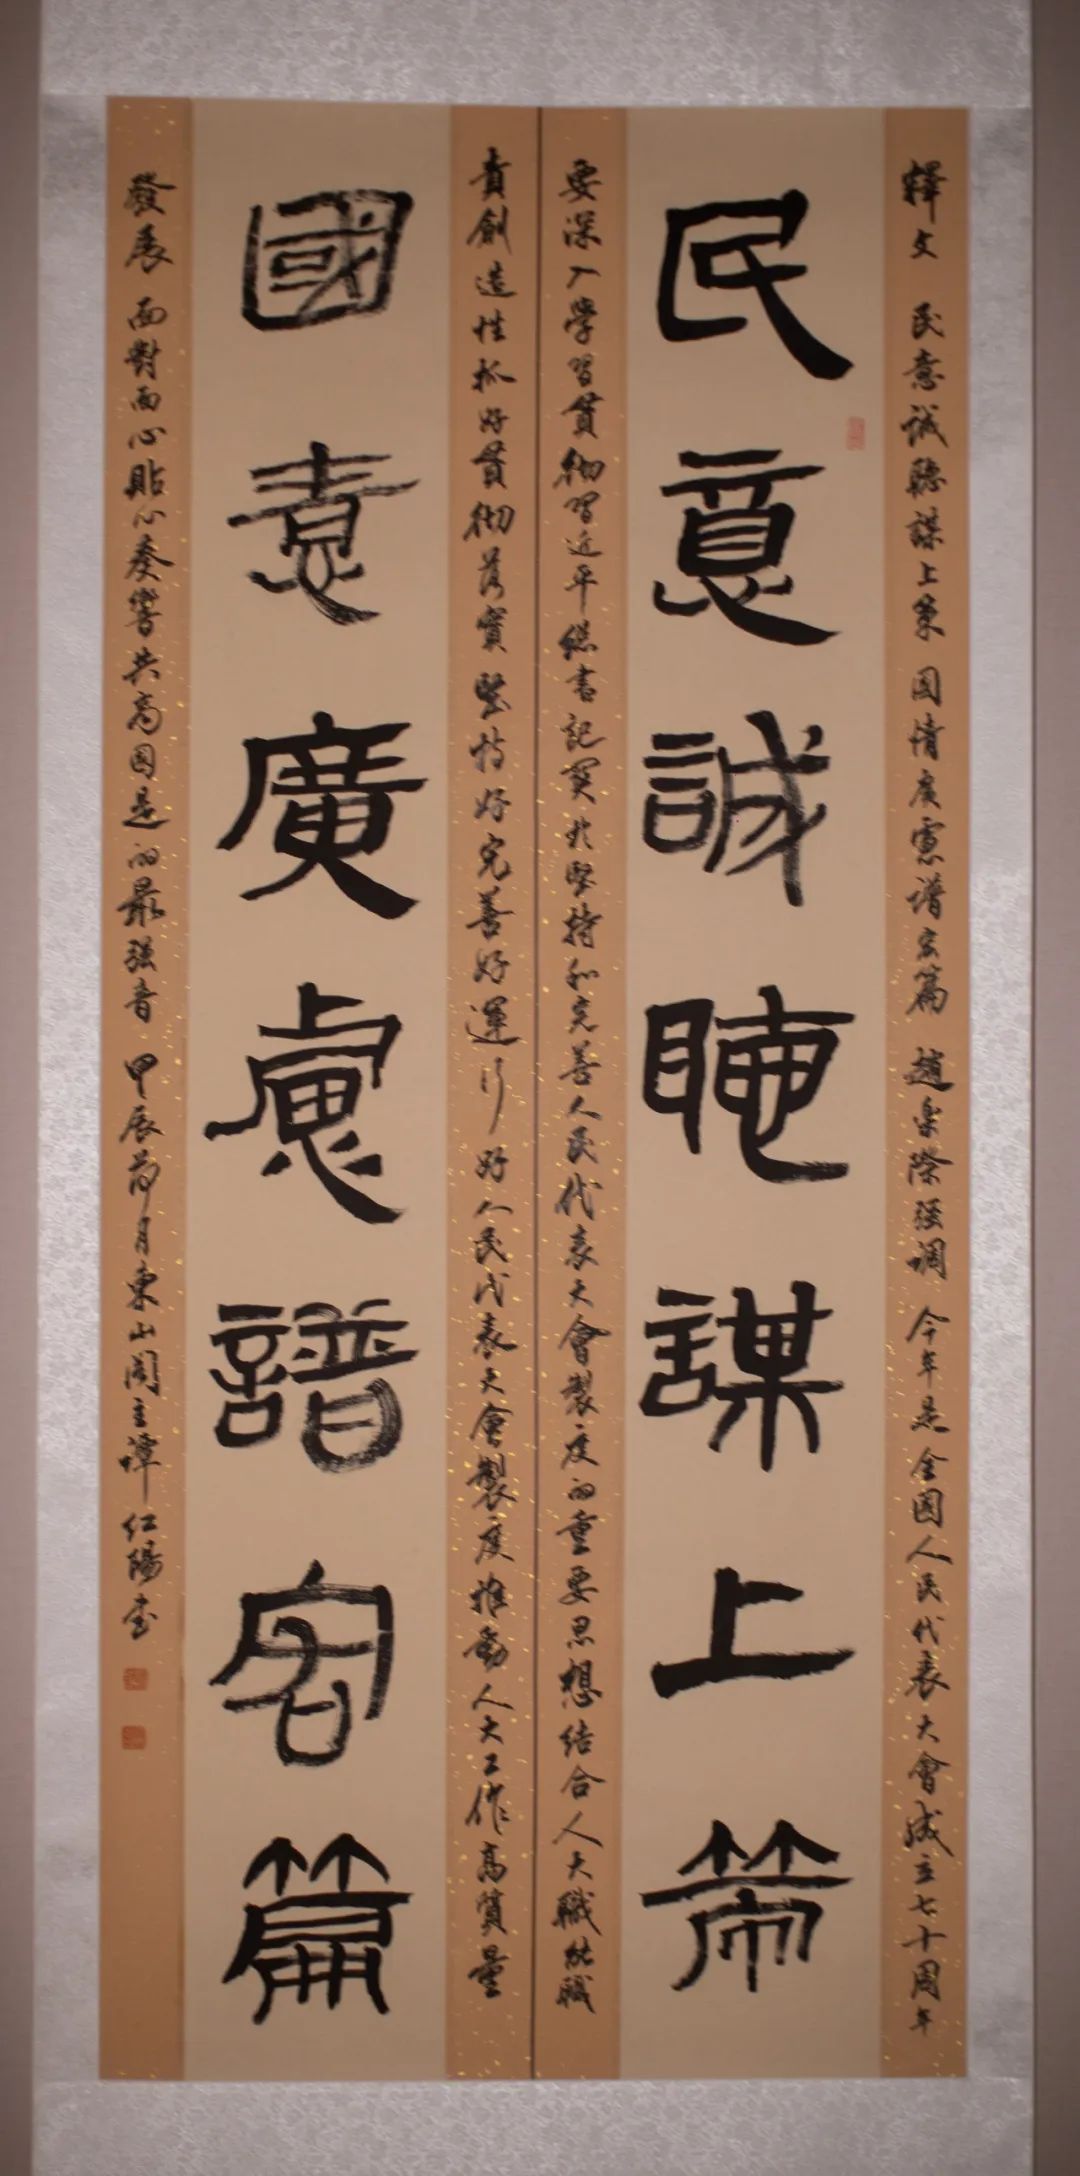 釋文 民意誠聽謀上策 國情廣慮譜宏篇 趙樂際强調 今年是全國人民代表大會成立七十周年
民意誠聽謀上策
要深入學習貫彻習近平總書記關於堅持和完善人民代表大會製度的重要思想結合人大職能職
責創造性抓好貫彻落實 堅持好完善好運行好人民代表大會製度推動人大工作高質量
國情廣慮譜宏篇
發展 面對面心貼心奏響共商國是的最强音 甲辰荷月東山閣主譚紅陽書